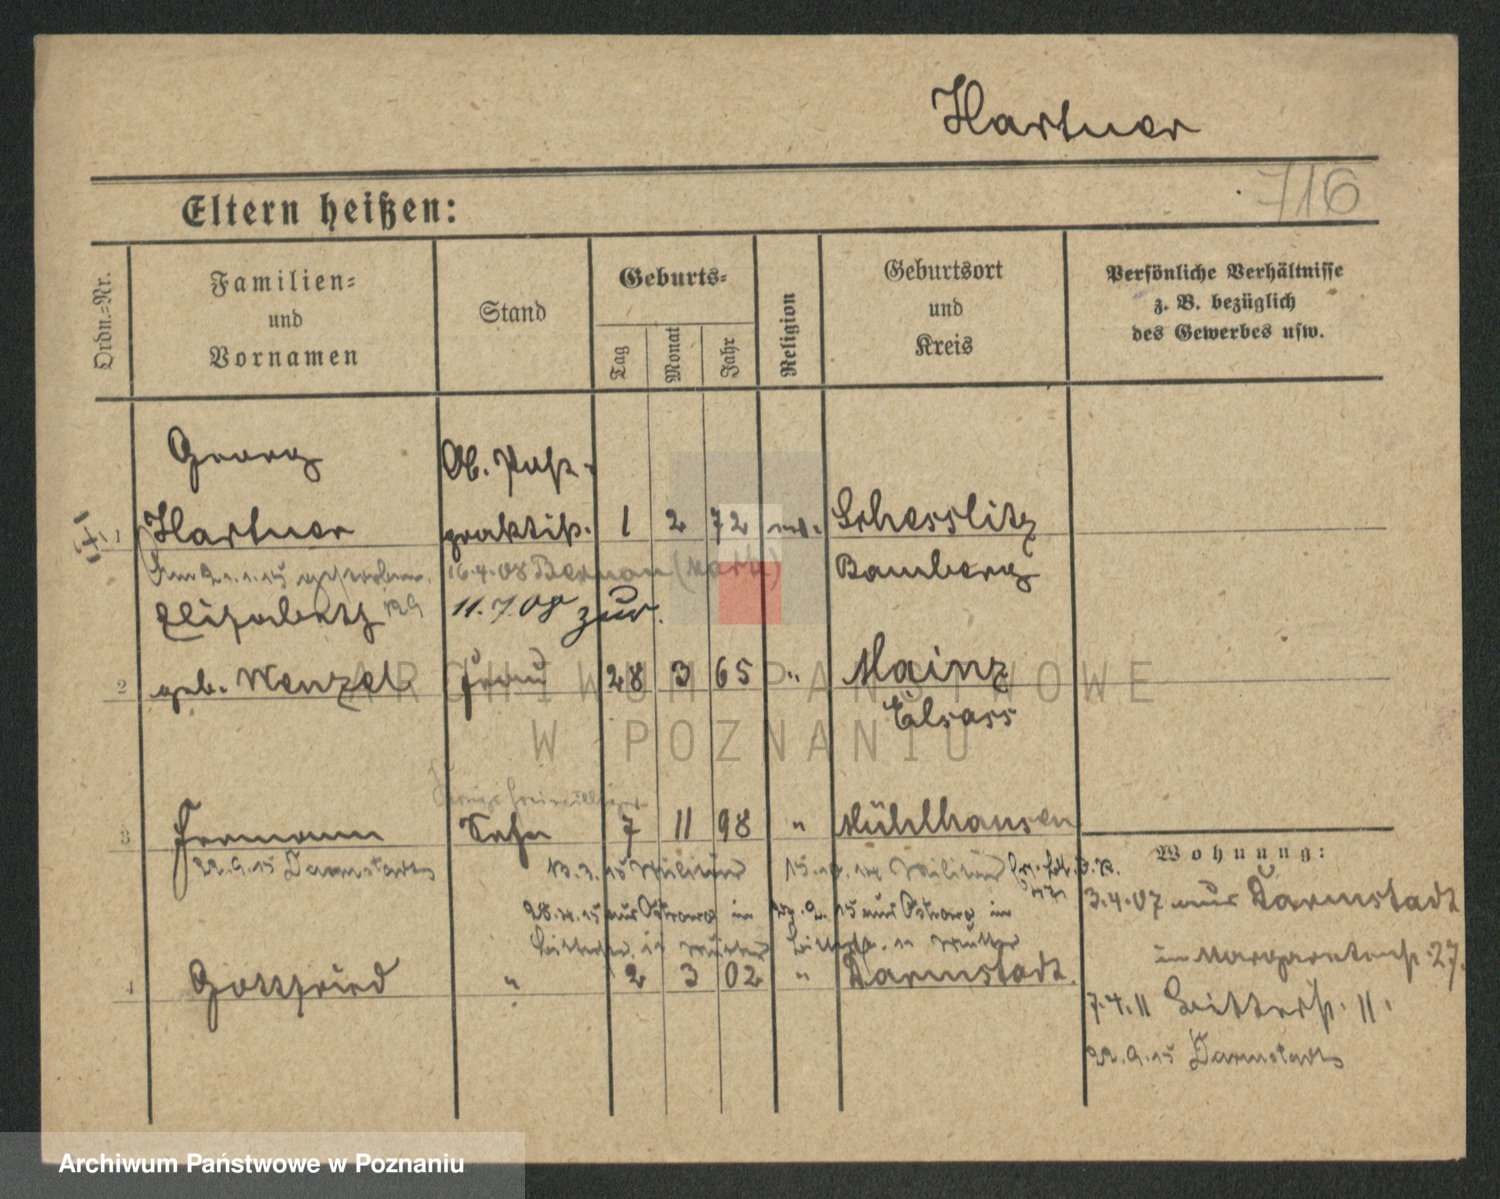 Hartner
716
Eltern heißen:
Ordn.-Nr.
Familien-
und
Vornamen
Stand
Geburts-
Tag
Monat
Jahr
Religion
Geburtsort
und
Kreis
Persönliche Verhältnisse
z. B. bezüglich
des Gewerbes usw.
Georg
Ob. Post-
1 Hartner praktik. 1 2 72 Schesslitz
gestorben. 16.4.08 Bernau (Mark) Bamberg
Elisabeth 11.7.08 zur.
2 geb. Wenzel Frau 28 3 65 " Mainz
Elsass
Kriegsfreiwilliger
3 Hermann Sohn 7 11 98 " Mühlhausen
Wohnung:
22.9.15 Darmstadt 13.3.15 Militär Militär
3.4.07 aus Darmstadt
28.4.15 aus Ostrowo in aus Ostrowo in
Mutter Mutter
Margaretenstr. 27.
4 Gottfried " 2 3 02 " Darmstadt.
7.4.11 Ritterstr. 11.
22.9.15 Darmstadt
ARCHIWUM PAŃSTWOWE
W POZNANIU
Archiwum Państwowe w Poznaniu